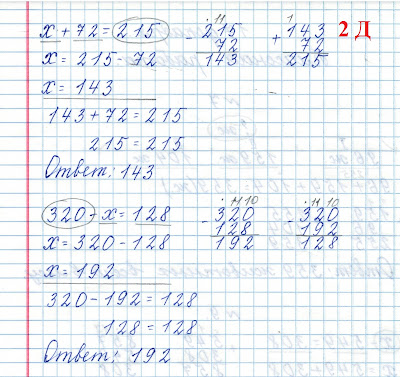 x + 72 = 215
x = 215 - 72
x = 143
143 + 72 = 215
215 = 215
Ответ: 143
11
- 215
72
143
1
+ 143
72
215
2 Д
320 - x = 128
x = 320 - 128
x = 192
320 - 192 = 128
128 = 128
Ответ: 192
11 10
- 320
128
192
11 10
- 320
192
128